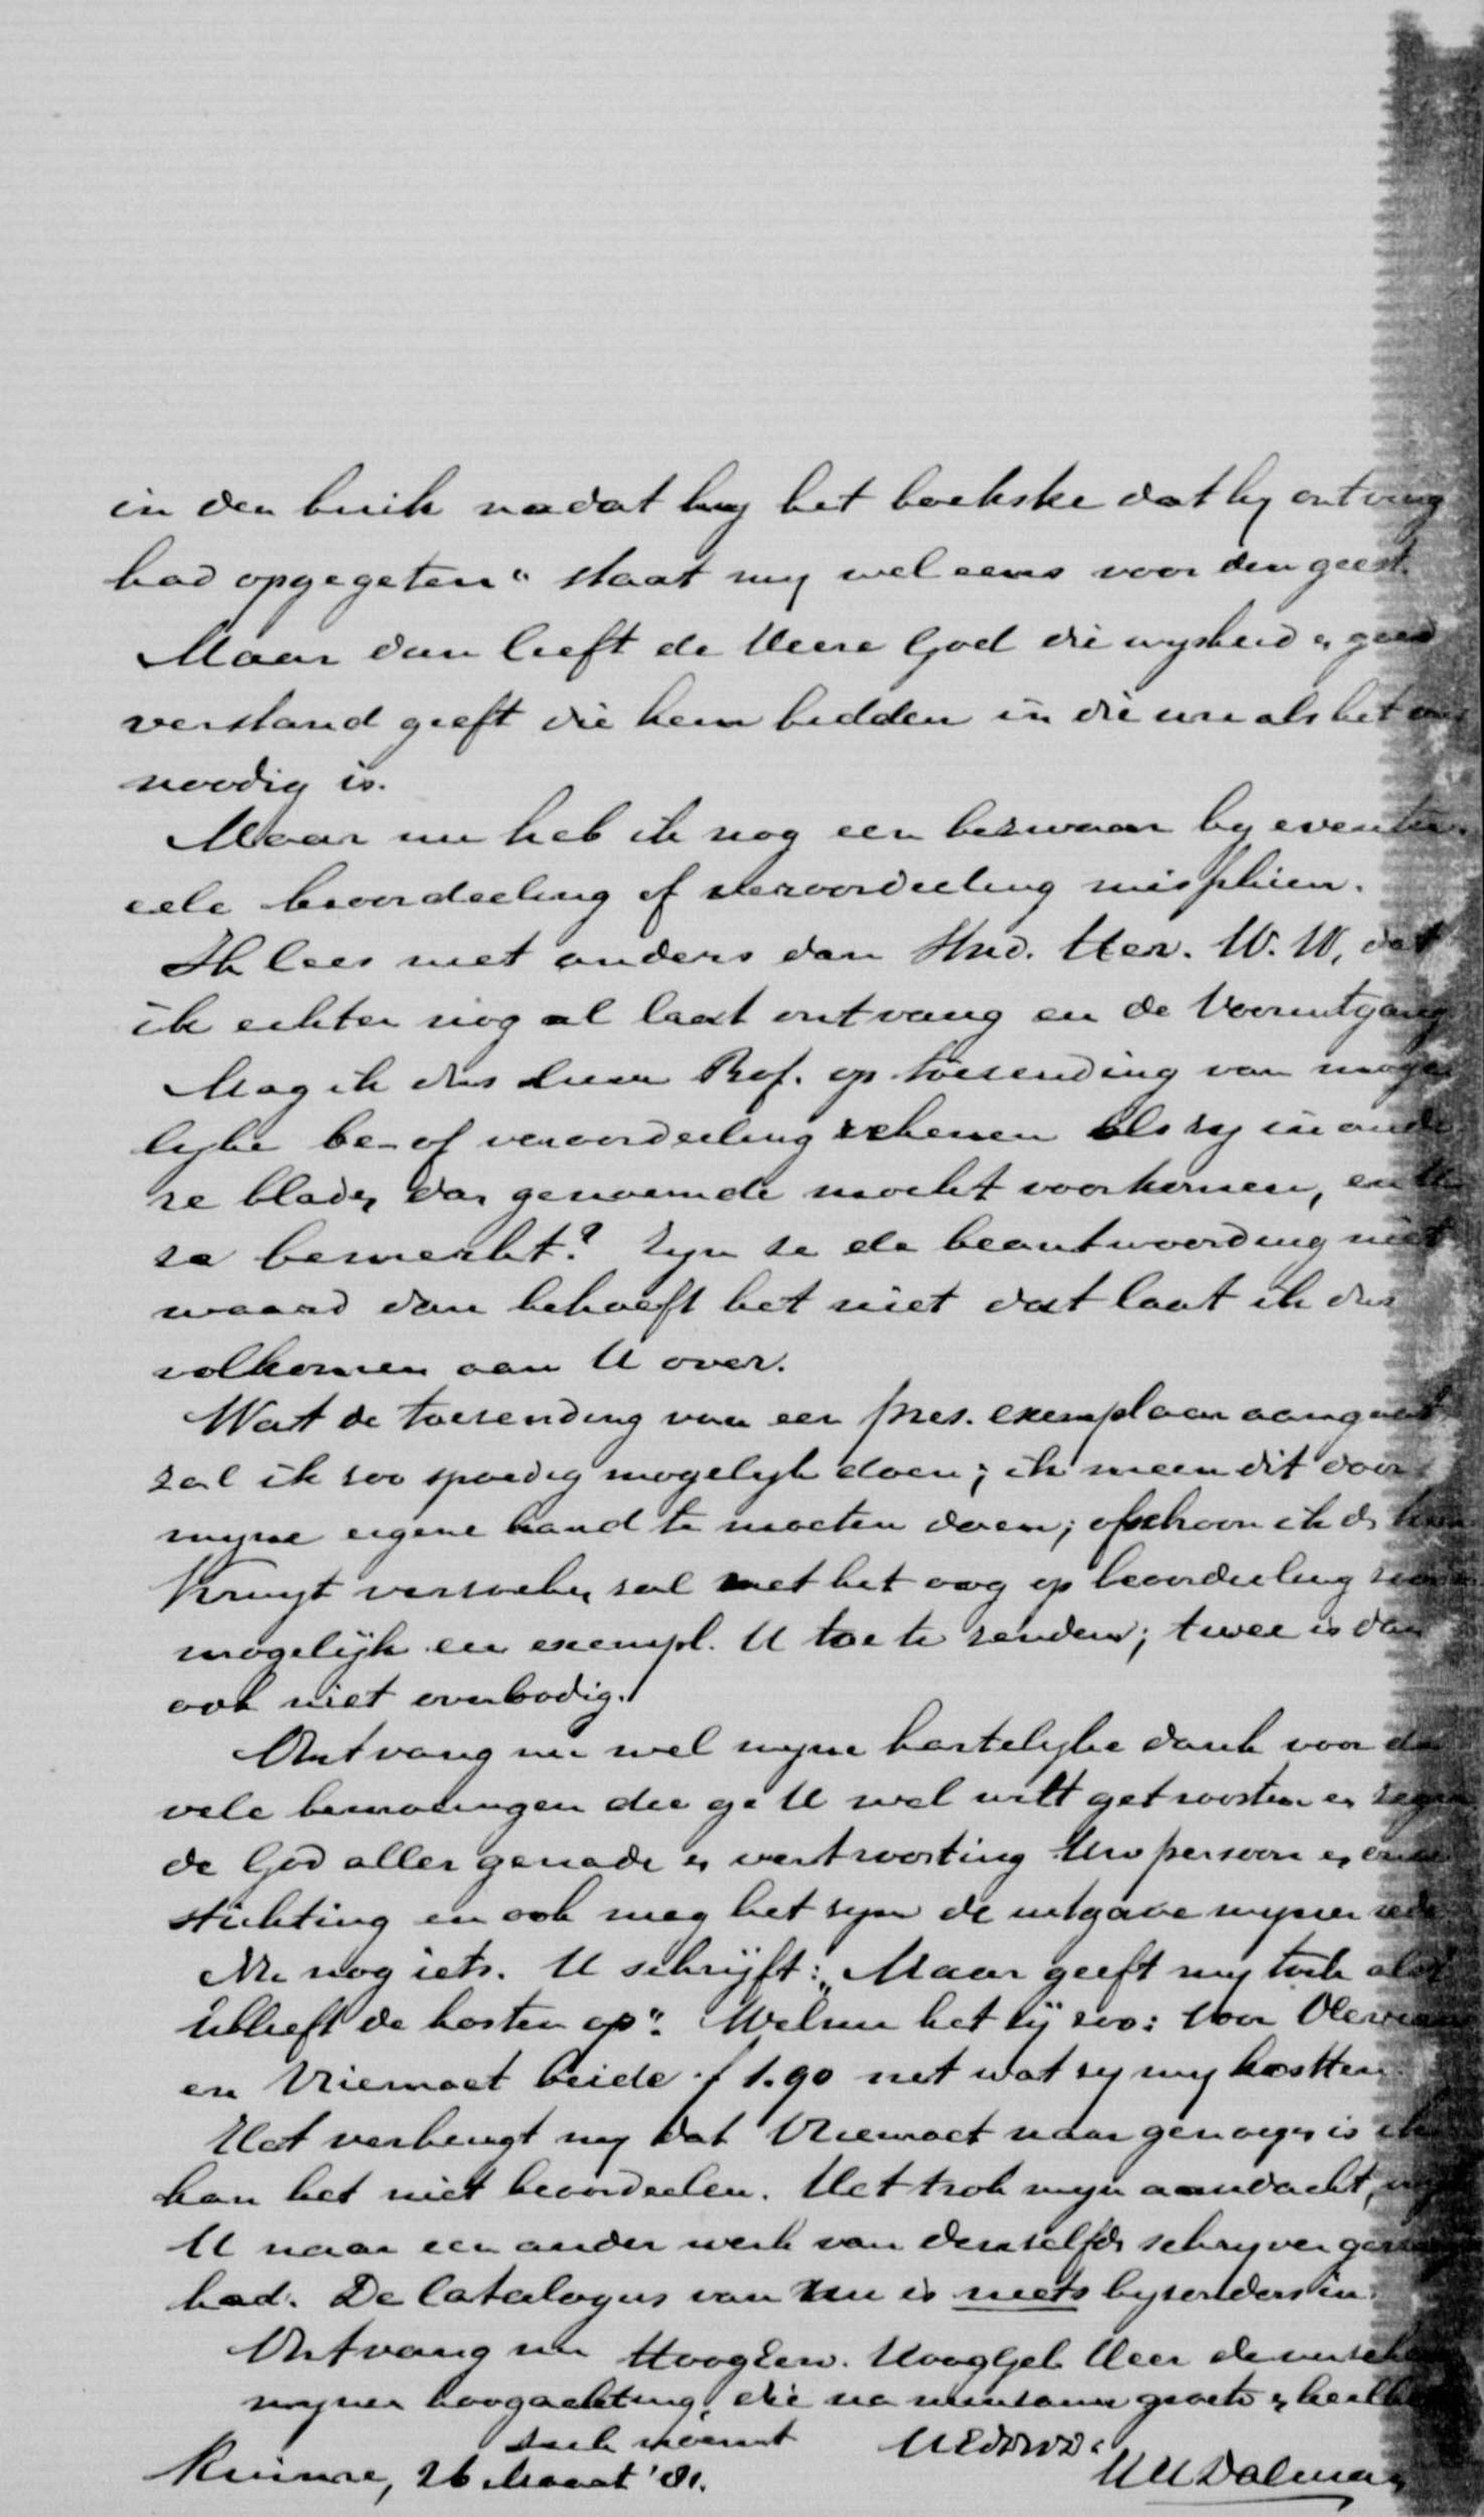 in den buik nadat hy het boekske dat hy ontving
had opgegeten" staat my wel eens voor den geest.
Maar dan leeft de Heere God die wysheid & goed
verstand geeft die hem bidden in die ure als het ons
noodig is.
Maar nu heb ik nog een bezwaar by eventu
eele beoordeeling of veroordeeling misschien.
Ik lees niet anders dan Stud. Her. W. W, dat
ik echter nog al laat ontvang en de Vooruitgang
Mag ik dus Prof. op toezending van moge
lyke be- of veroordeeling rekenen als zy in ande
re bladen dan genoemde mocht voorkomen, en U
ze bemerkt? Zyn ze de beantwoording niet
waard dan behoeft het niet dat laat ik dus
volkomen aan U over.
Wat de toezending van een pres. exemplaar aangaat
zal ik zoo spoedig mogelyk doen; ik meen dit door
myne eigene hand te moeten doen; ofschoon ik de heer
Kruyt verzoeken zal met het oog op beoordeeling zoo
mogelijk een exempl. U toe te zenden; twee is dan
ook niet overbodig.
Ontvang nu wel myne hartelyke dank voor de
vele bemoeiingen die ge U wel wilt getroosten en zegene
de God aller genade & vertroosting Uw persoon en onze
stichting en ook mag het zyn de uitgave myner rede
Nu nog iets. U schrijft: „Maar geeft my toch als t
Ublieft de kosten op". Welnu het zij zoo: voor
en Vriemoet beide f 1.90 net wat zy my kostten.
Het verheugt my dat Vriemoet naar genoegen is ik
kan het niet beoordeelen. Het trok myn aandacht,
U naar een ander werk van denzelfden schryver
had. De Catalogus van nu is niets byzonders in.
Ontvang nu HoogEerw. HoogGel. Heer de
myner hoogachting, die na groete &
zich noemt UEDWD.
Kuinre, 26 Maart '81. Dalman